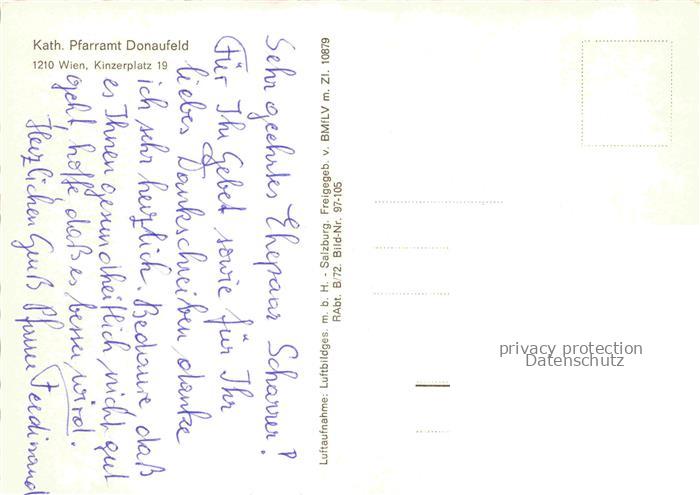 Kath. Pfarramt Donaufeld
1210 Wien, Kinzerplatz 19
Sehr geehrtes Ehepaar Scharrer!
Für Ihr Gebet sowie für Ihr
liebes Dankschreiben danke
ich sehr herzlich. Bedaure daß
es Ihnen gesundheitlich nicht gut
geht, hoffe, daß es besser wird.
Herzlichen Gruß Pfarrer Ferdinand
Luftaufnahme: Luftbildges. m. b. H. - Salzburg. Freigegeb. v. BMfLV m. Zl. 10879
RAbt. B/72. Bild-Nr. 97-105
privacy protection
Datenschutz